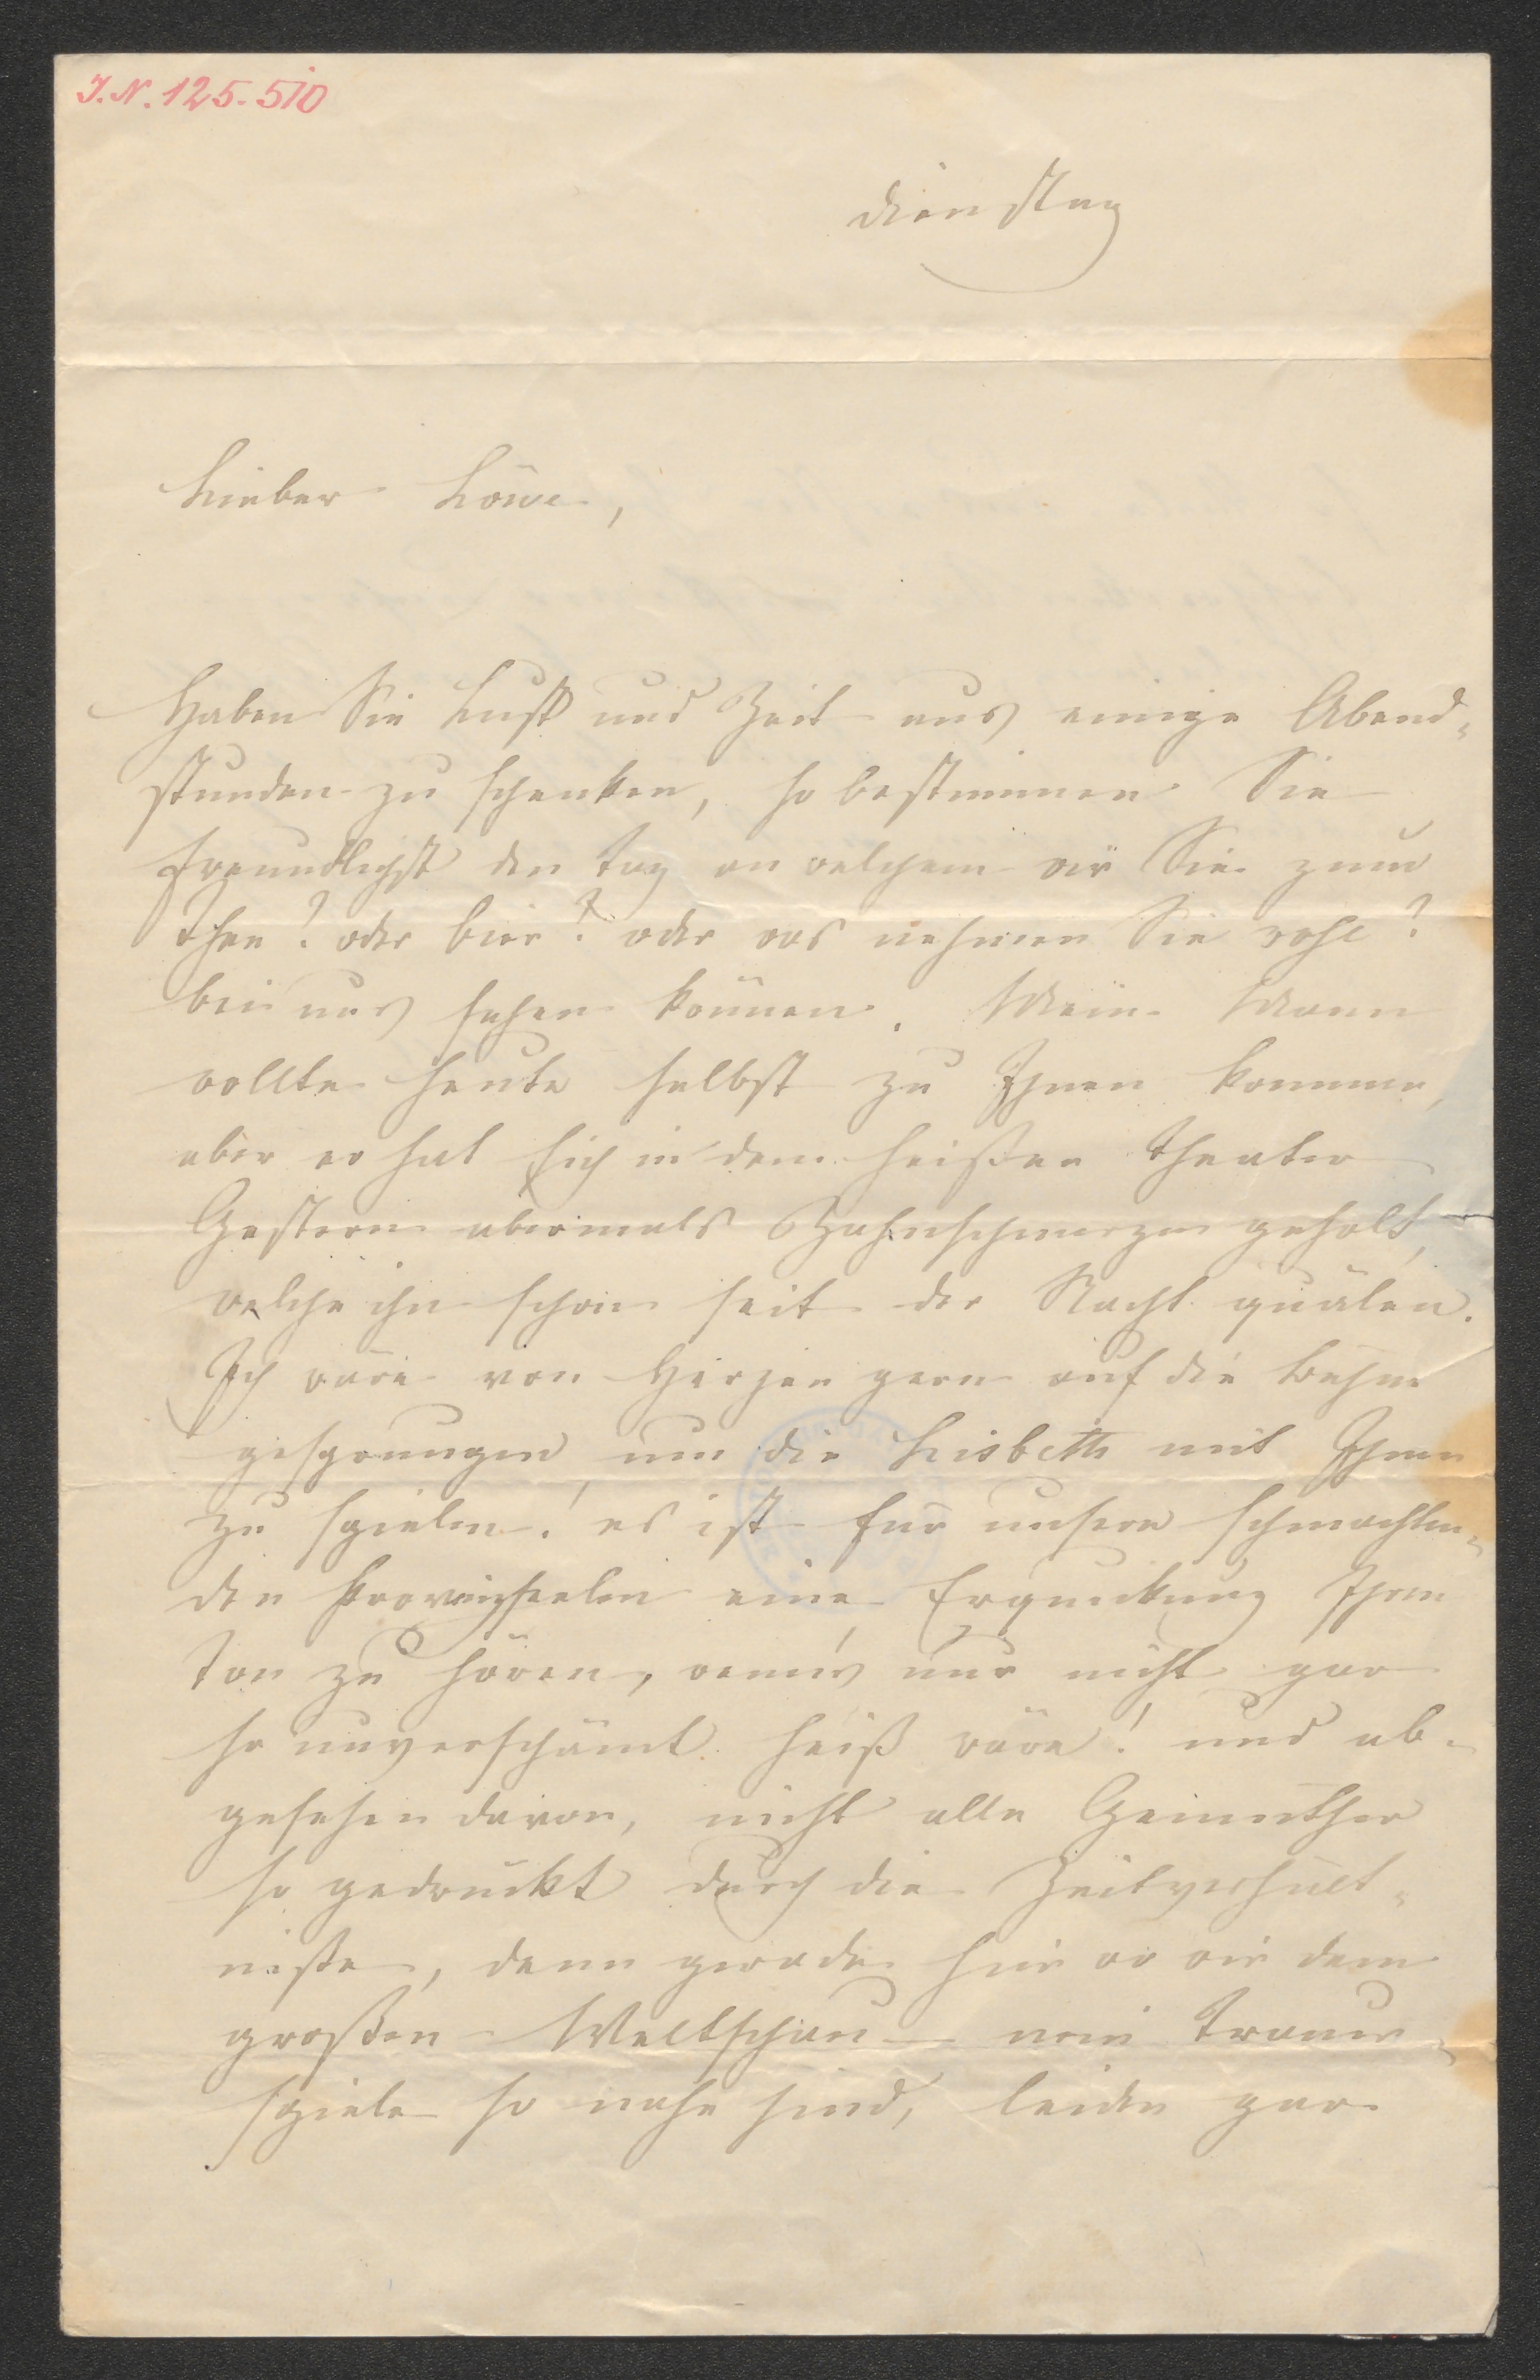 J.N. 125.510
Dienstag
Lieber Löwe,
Haben Sie Lust und Zeit uns einige Abend-
stunden zu schenken, so bestimmen Sie
freundlichst den Tag an welchem wir Sie zum
Thee? oder Bier? oder was nehmen Sie wohl?
bei uns sehen können. Mein Mann
wollte heute selbst zu Ihnen kommen,
aber er hat sich in dem heißen Theater
Gestern abermals Zahnschmerzen geholt,
welche ihn schon seit der Nacht quälen.
Ich wäre von Herzen gern auf die Bühne
gesprungen, um die Lisbeth mit Ihnen
zu spielen! es ist für unsere schmachten-
den Provinzseelen eine Erquickung Ihren
Ton zu hören, wenns nur nicht gar
so unverschämt heiß wäre! und ab-
gesehen davon, nicht alle Gemüther
so gedrückt durch die Zeitverhält-
niße, denn gerade hier wo wir dem
großen Weltschau- nein Trauer-
spiele so nahe sind, leiden gar